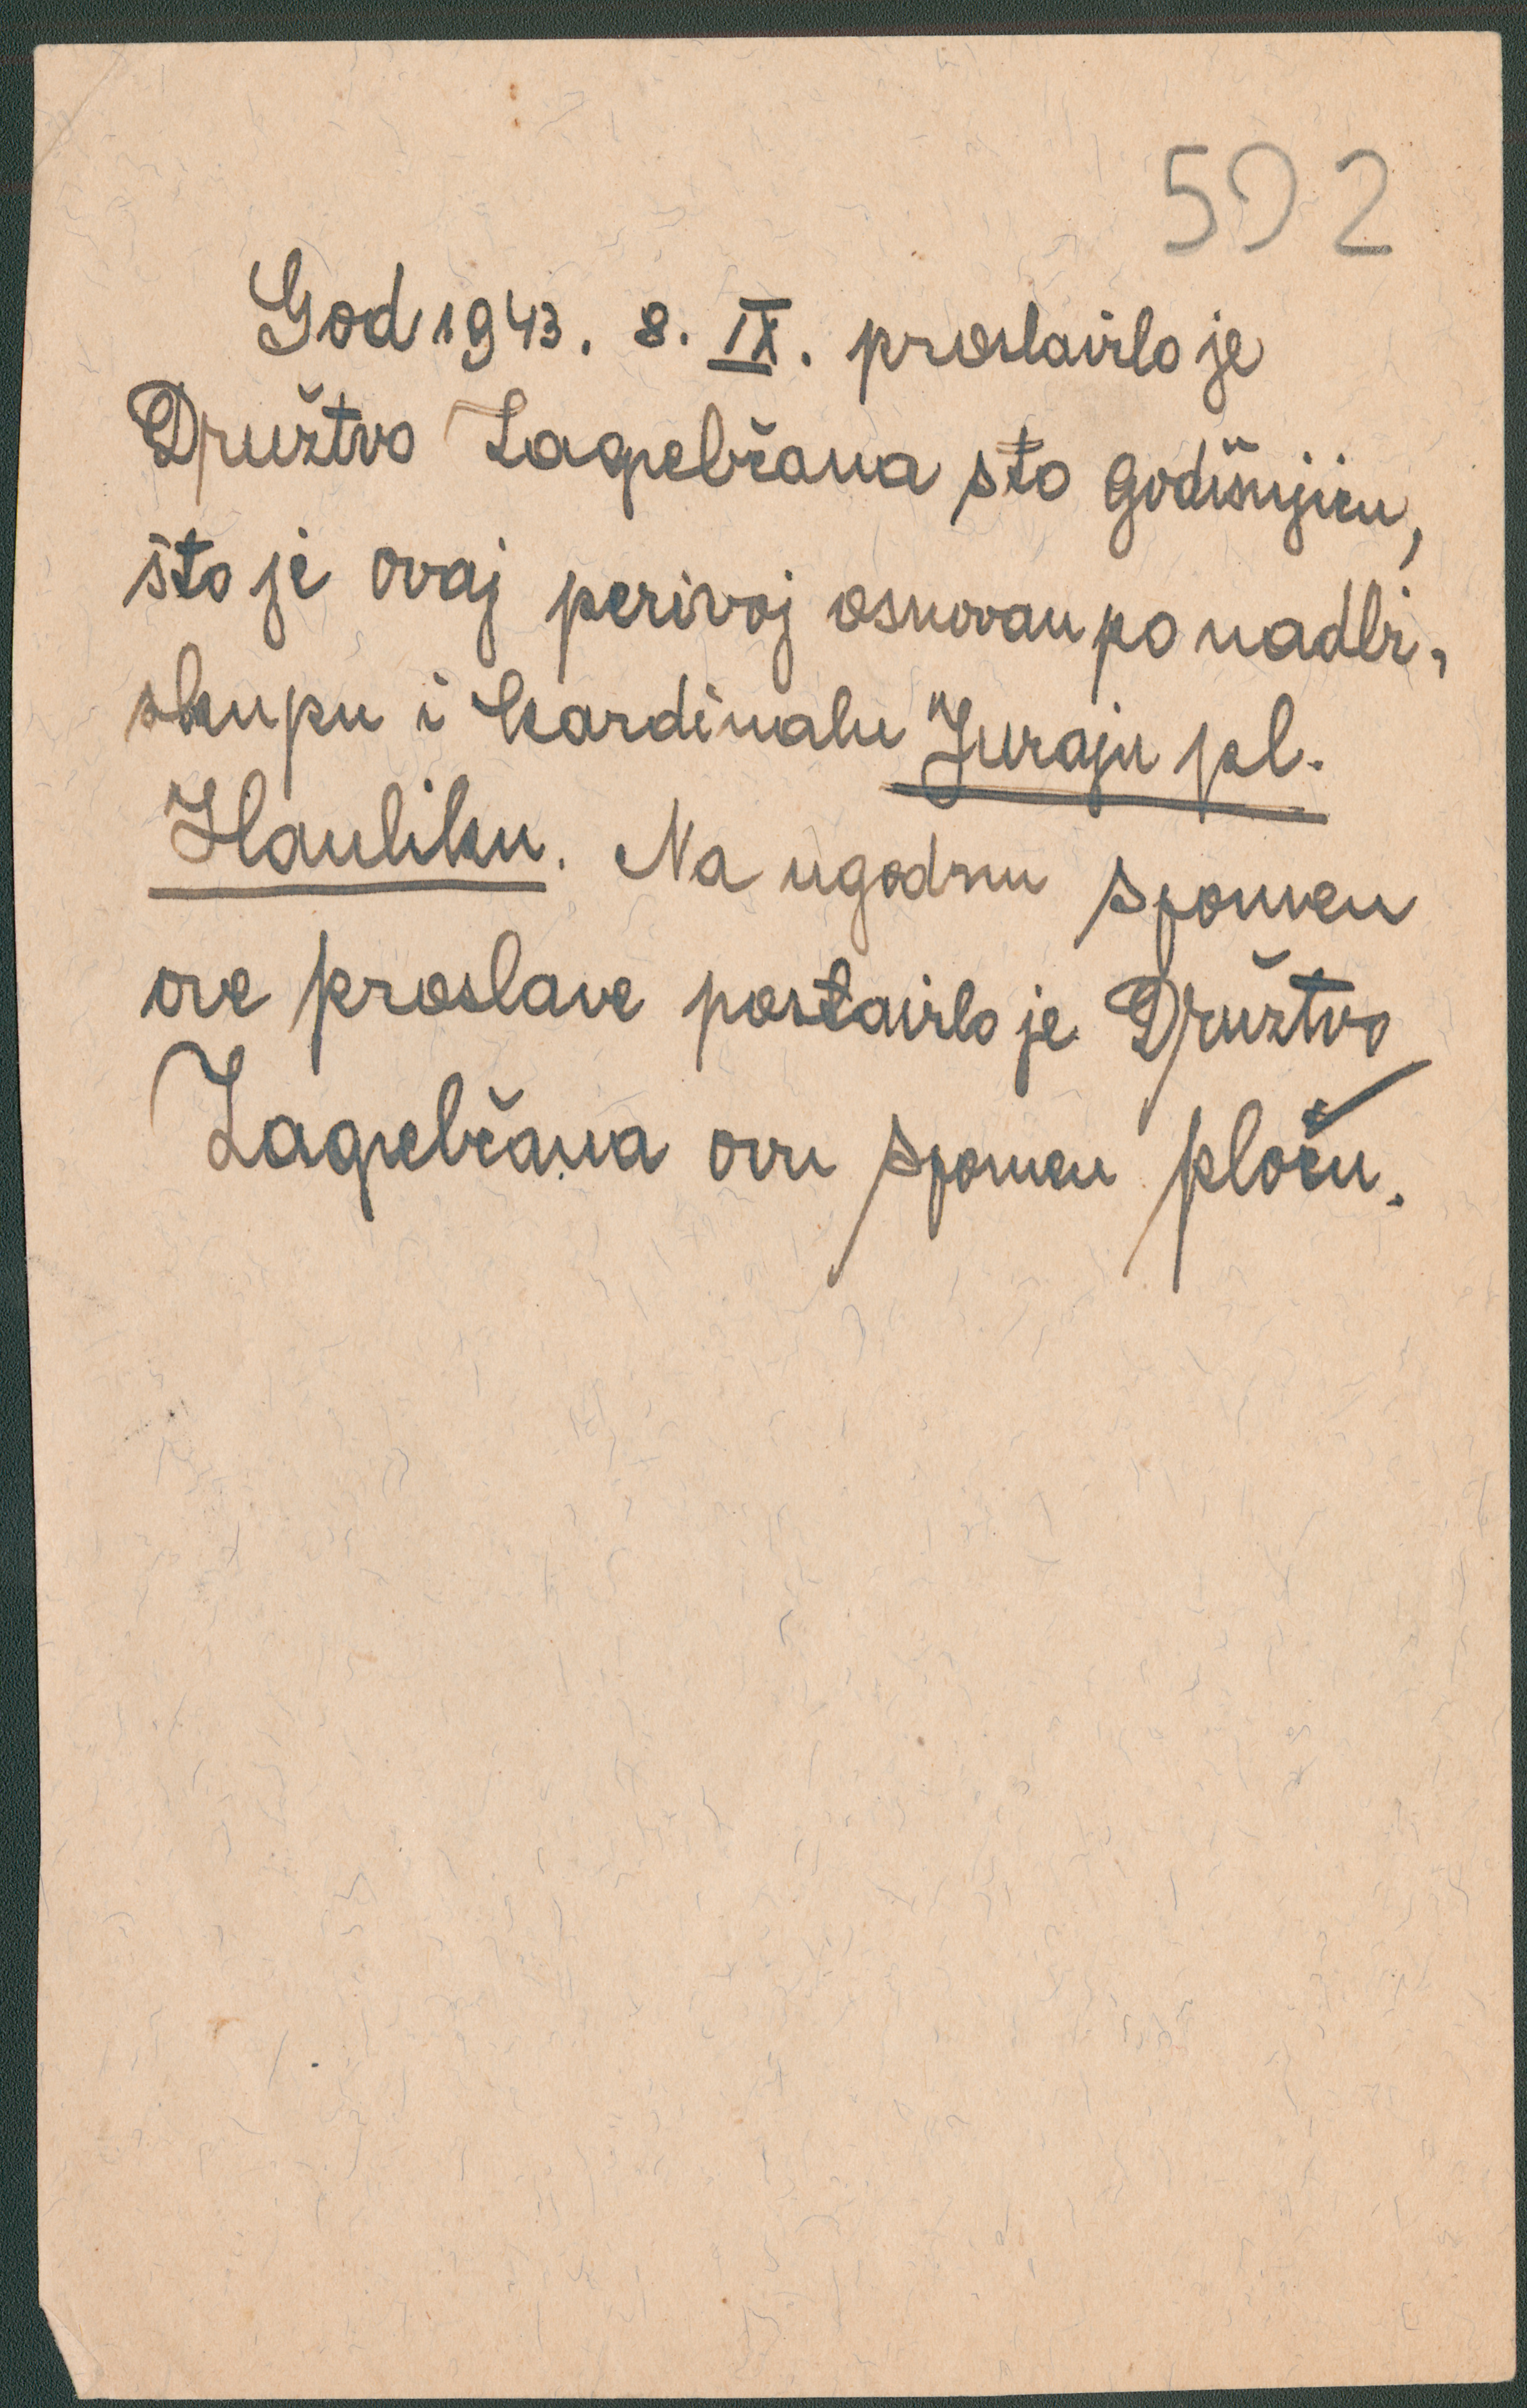 592
God 1943. 8. IX. proslavilo je
Družtvo Zagrebčana sto godišnjicu,
što je ovaj perivoj osnovan po nadbi-
skupu i kardinalu Juraju pl.
Hauliku. Na ugodnu spomen
ove proslave postavilo je Družtvo
Zagrebčana ovu spomen ploču.